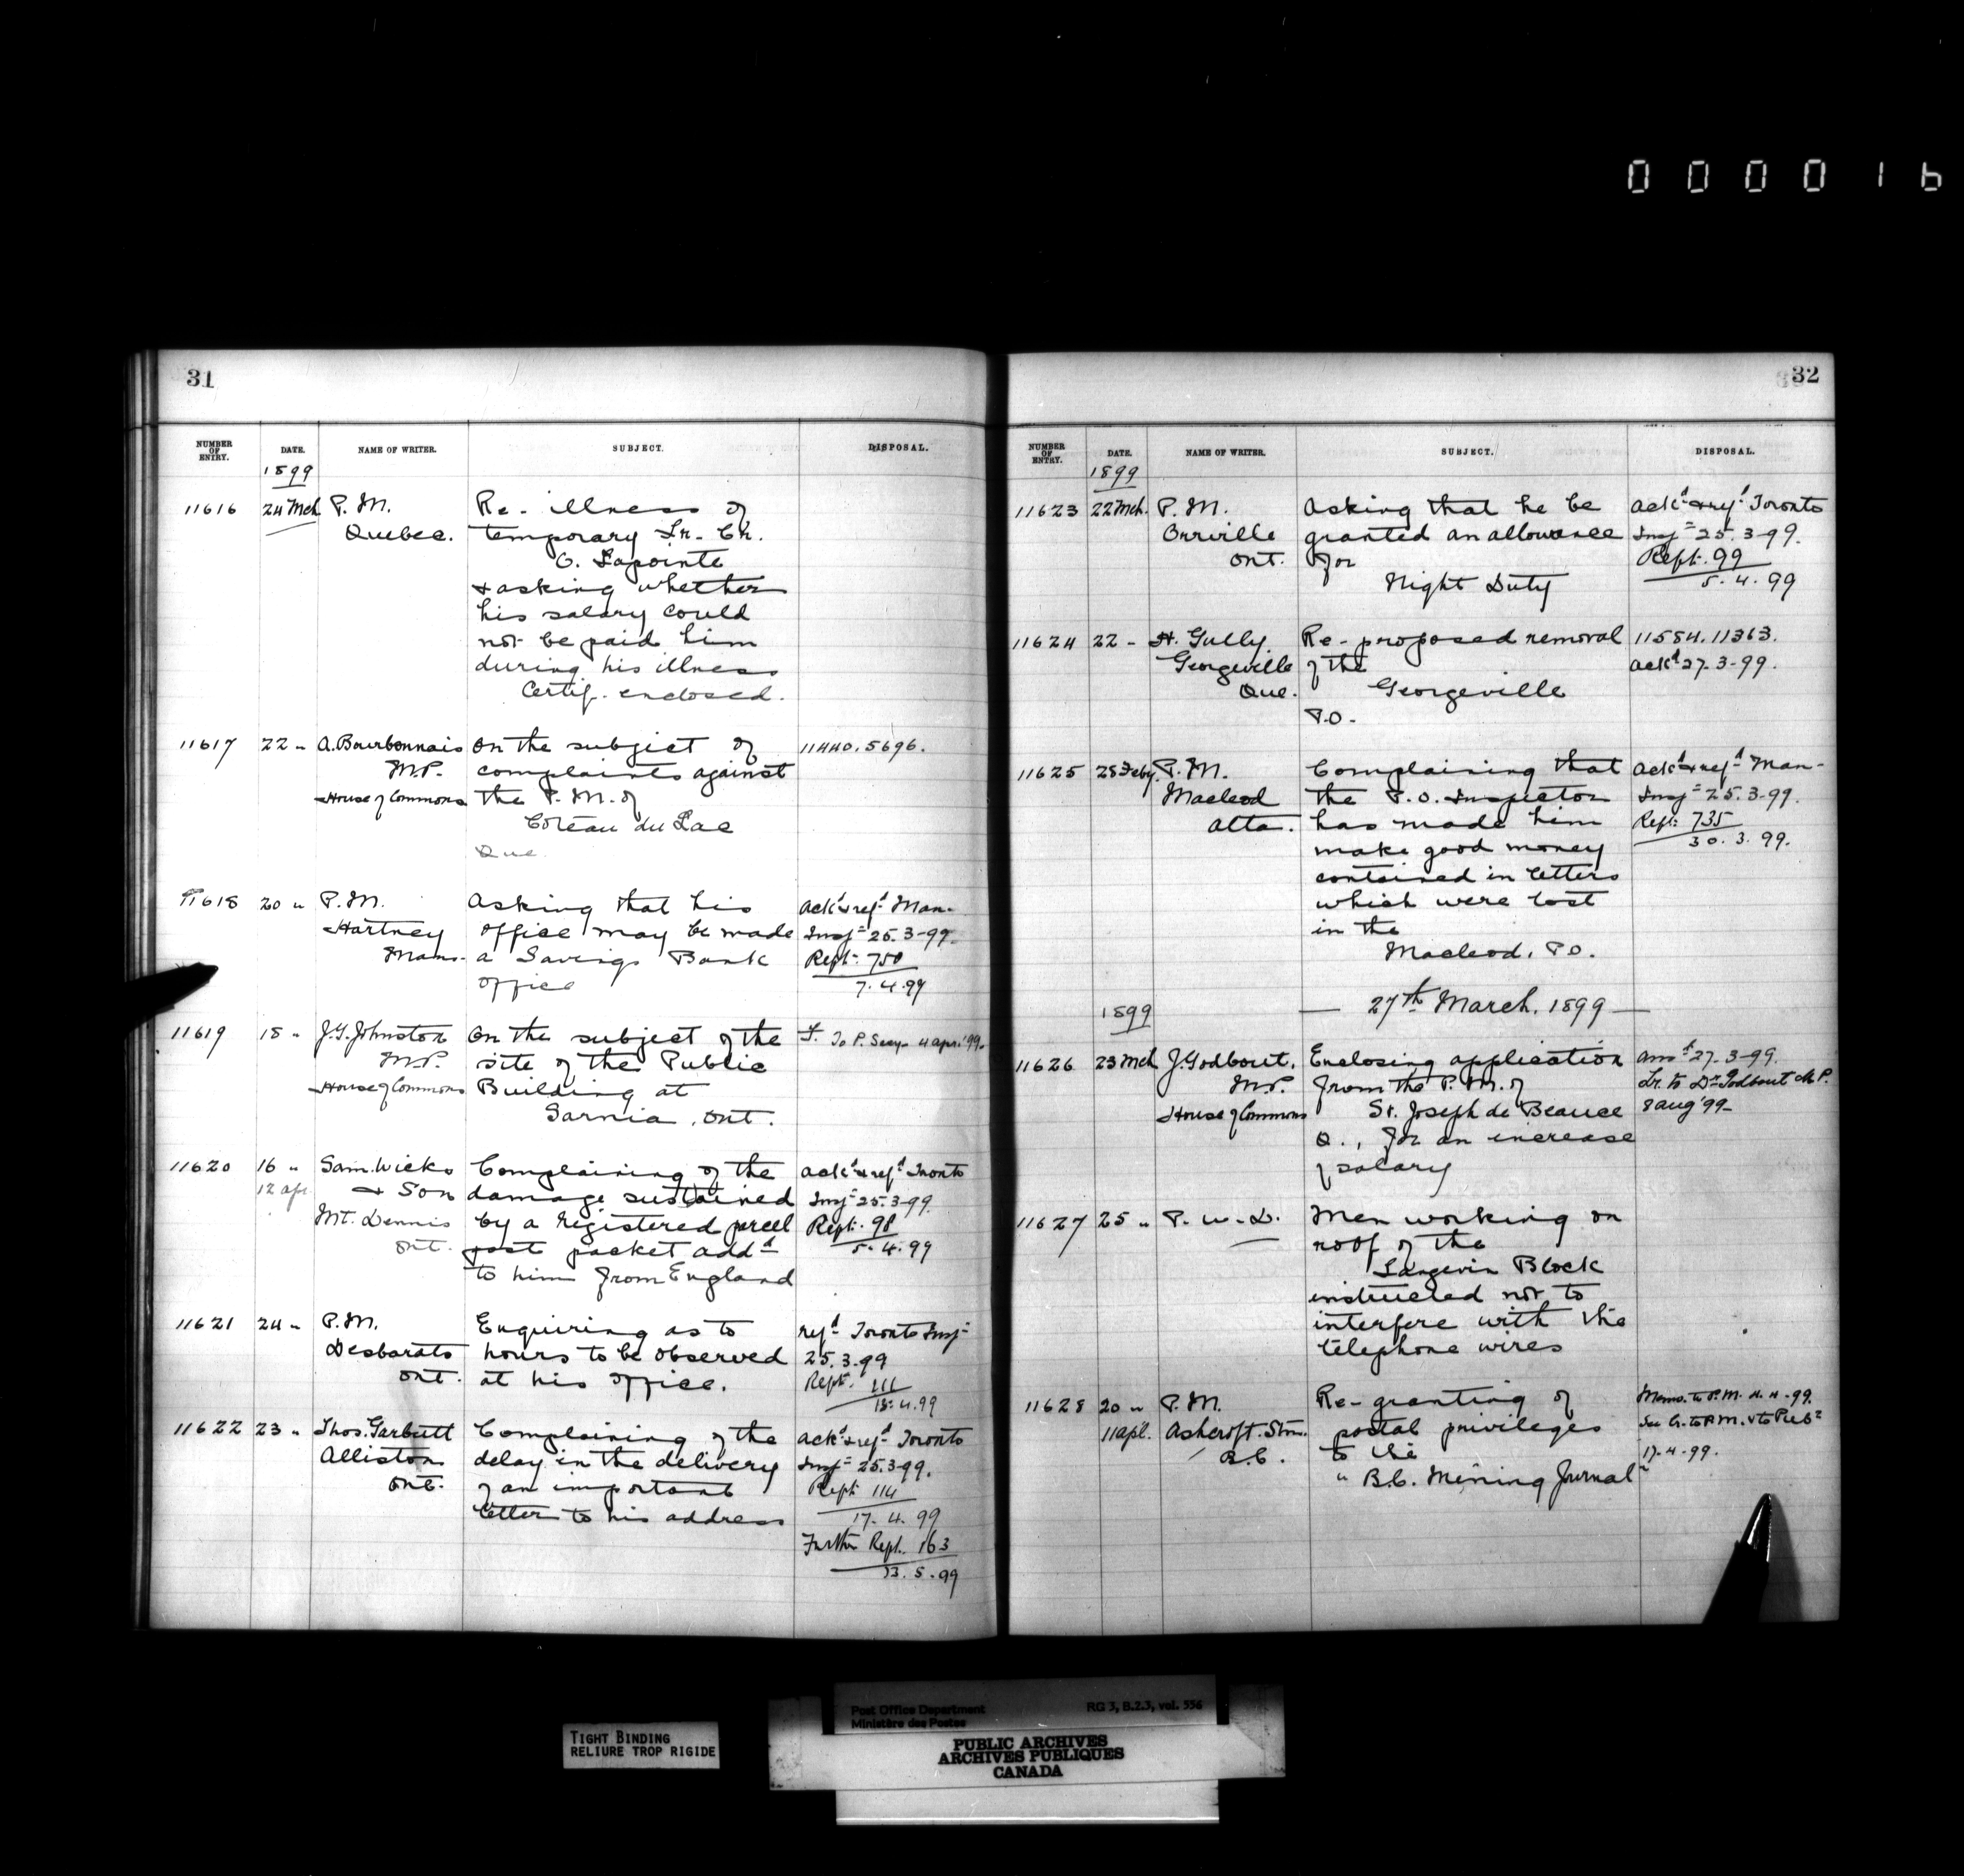 000016
31
NUMBER OF ENTRY. DATE. NAME OF WRITER. SUBJECT. DISPOSAL.
1899
11616 24 Mch P. M. Re- illness of
Quebec. temporary Lr. Ch.
O. Lapointe
& asking whether
his salary could
not be paid him
during his illness
Certif. enclosed.
11617 22 " A. Bourbonnais On the subject of 11440. 5696.
M.P. complaints against
House of Commons the P. M. of
Coteau du Lac
Que
11618 20 " P. M. Asking that his ackd & refd Man-
Hartney office may be made Insp= 25.3-99.
Man. a Savings Bank Rept. 750
office 7.4.99
11619 18 " J.G. Johnston On the subject of the F. To P. Secy. 4 apr. '99.
M.P. site of the Public
House of Commons Building at
Sarnia, Ont.
11620 16 " Sam. Wicks Complaining of the ackd & refd Toronto
12 apr. & Son damage sustained Insp= 25.3-99.
Mt. Dennis by a registered parcel Rept. 98
Ont. post packet addd 5.4.99
to him from England
11621 24 " P.M. Enquiring as to refd Toronto Insp=
Desbarats hours to be observed 25.3-99
Ont. at his office. Rept. 111
15.4.99
11622 23 " Thos. Garbutt Complaining of the ackd & refd Toronto
Alliston delay in the delivery Insp= 25.3-99.
Ont. of an important Rept 114
letter to his address 17.4.99
Further Rept. 163
13.5.99
32
NUMBER OF ENTRY. DATE. NAME OF WRITER. SUBJECT. DISPOSAL.
1899
11623 22 Mch. P. M. Asking that he be ackd & refd Toronto
Orrville granted an allowance Insp= 25.3-99.
Ont. for Rept. 99
Night Duty 5.4.99
11624 22 - H. Gully Re- proposed removal 11584. 11363.
Georgeville of the ackd 27.3-99.
Que. Georgeville
P.O.
11625 28 Feby. P. M. Complaining that ackd & refd Man-
Macleod the P.O. Inspector Insp= 25.3-99.
Alta. has made him Rept: 735
make good money 30.3.99.
contained in letters
which were lost
in the
Macleod. P.O.
1899 — 27th March. 1899 —
11626 23 Mch J. Godbout. Enclosing application ansd 27.3-99.
M.P. from the P. M. of Lr. to Dr Godbout M.P.
House of Commons St. Joseph de Beauce 8 aug '99-
Q., for an increase
of salary
11627 25 " P. W. D. Men working on
roof of the
Langevin Block
instructed not to
interfere with the
telephone wires
11628 20 " P. M. Re- granting of Memo. to P.M. 4.4-99.
11 apl. Ashcroft. Stn. postal privileges See Lr. to P.M. & to Pubr
B.C. to the 17-4-99.
"B.C. Mining Journal"
TIGHT BINDING
RELIURE TROP RIGIDE
Post Office Department RG 3, B.Z.3, vol. 556
Ministère des Postes
PUBLIC ARCHIVES
ARCHIVES PUBLIQUES
CANADA